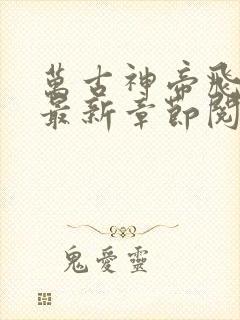 萬古神帝飛
最新章節閱
鬼愛靈